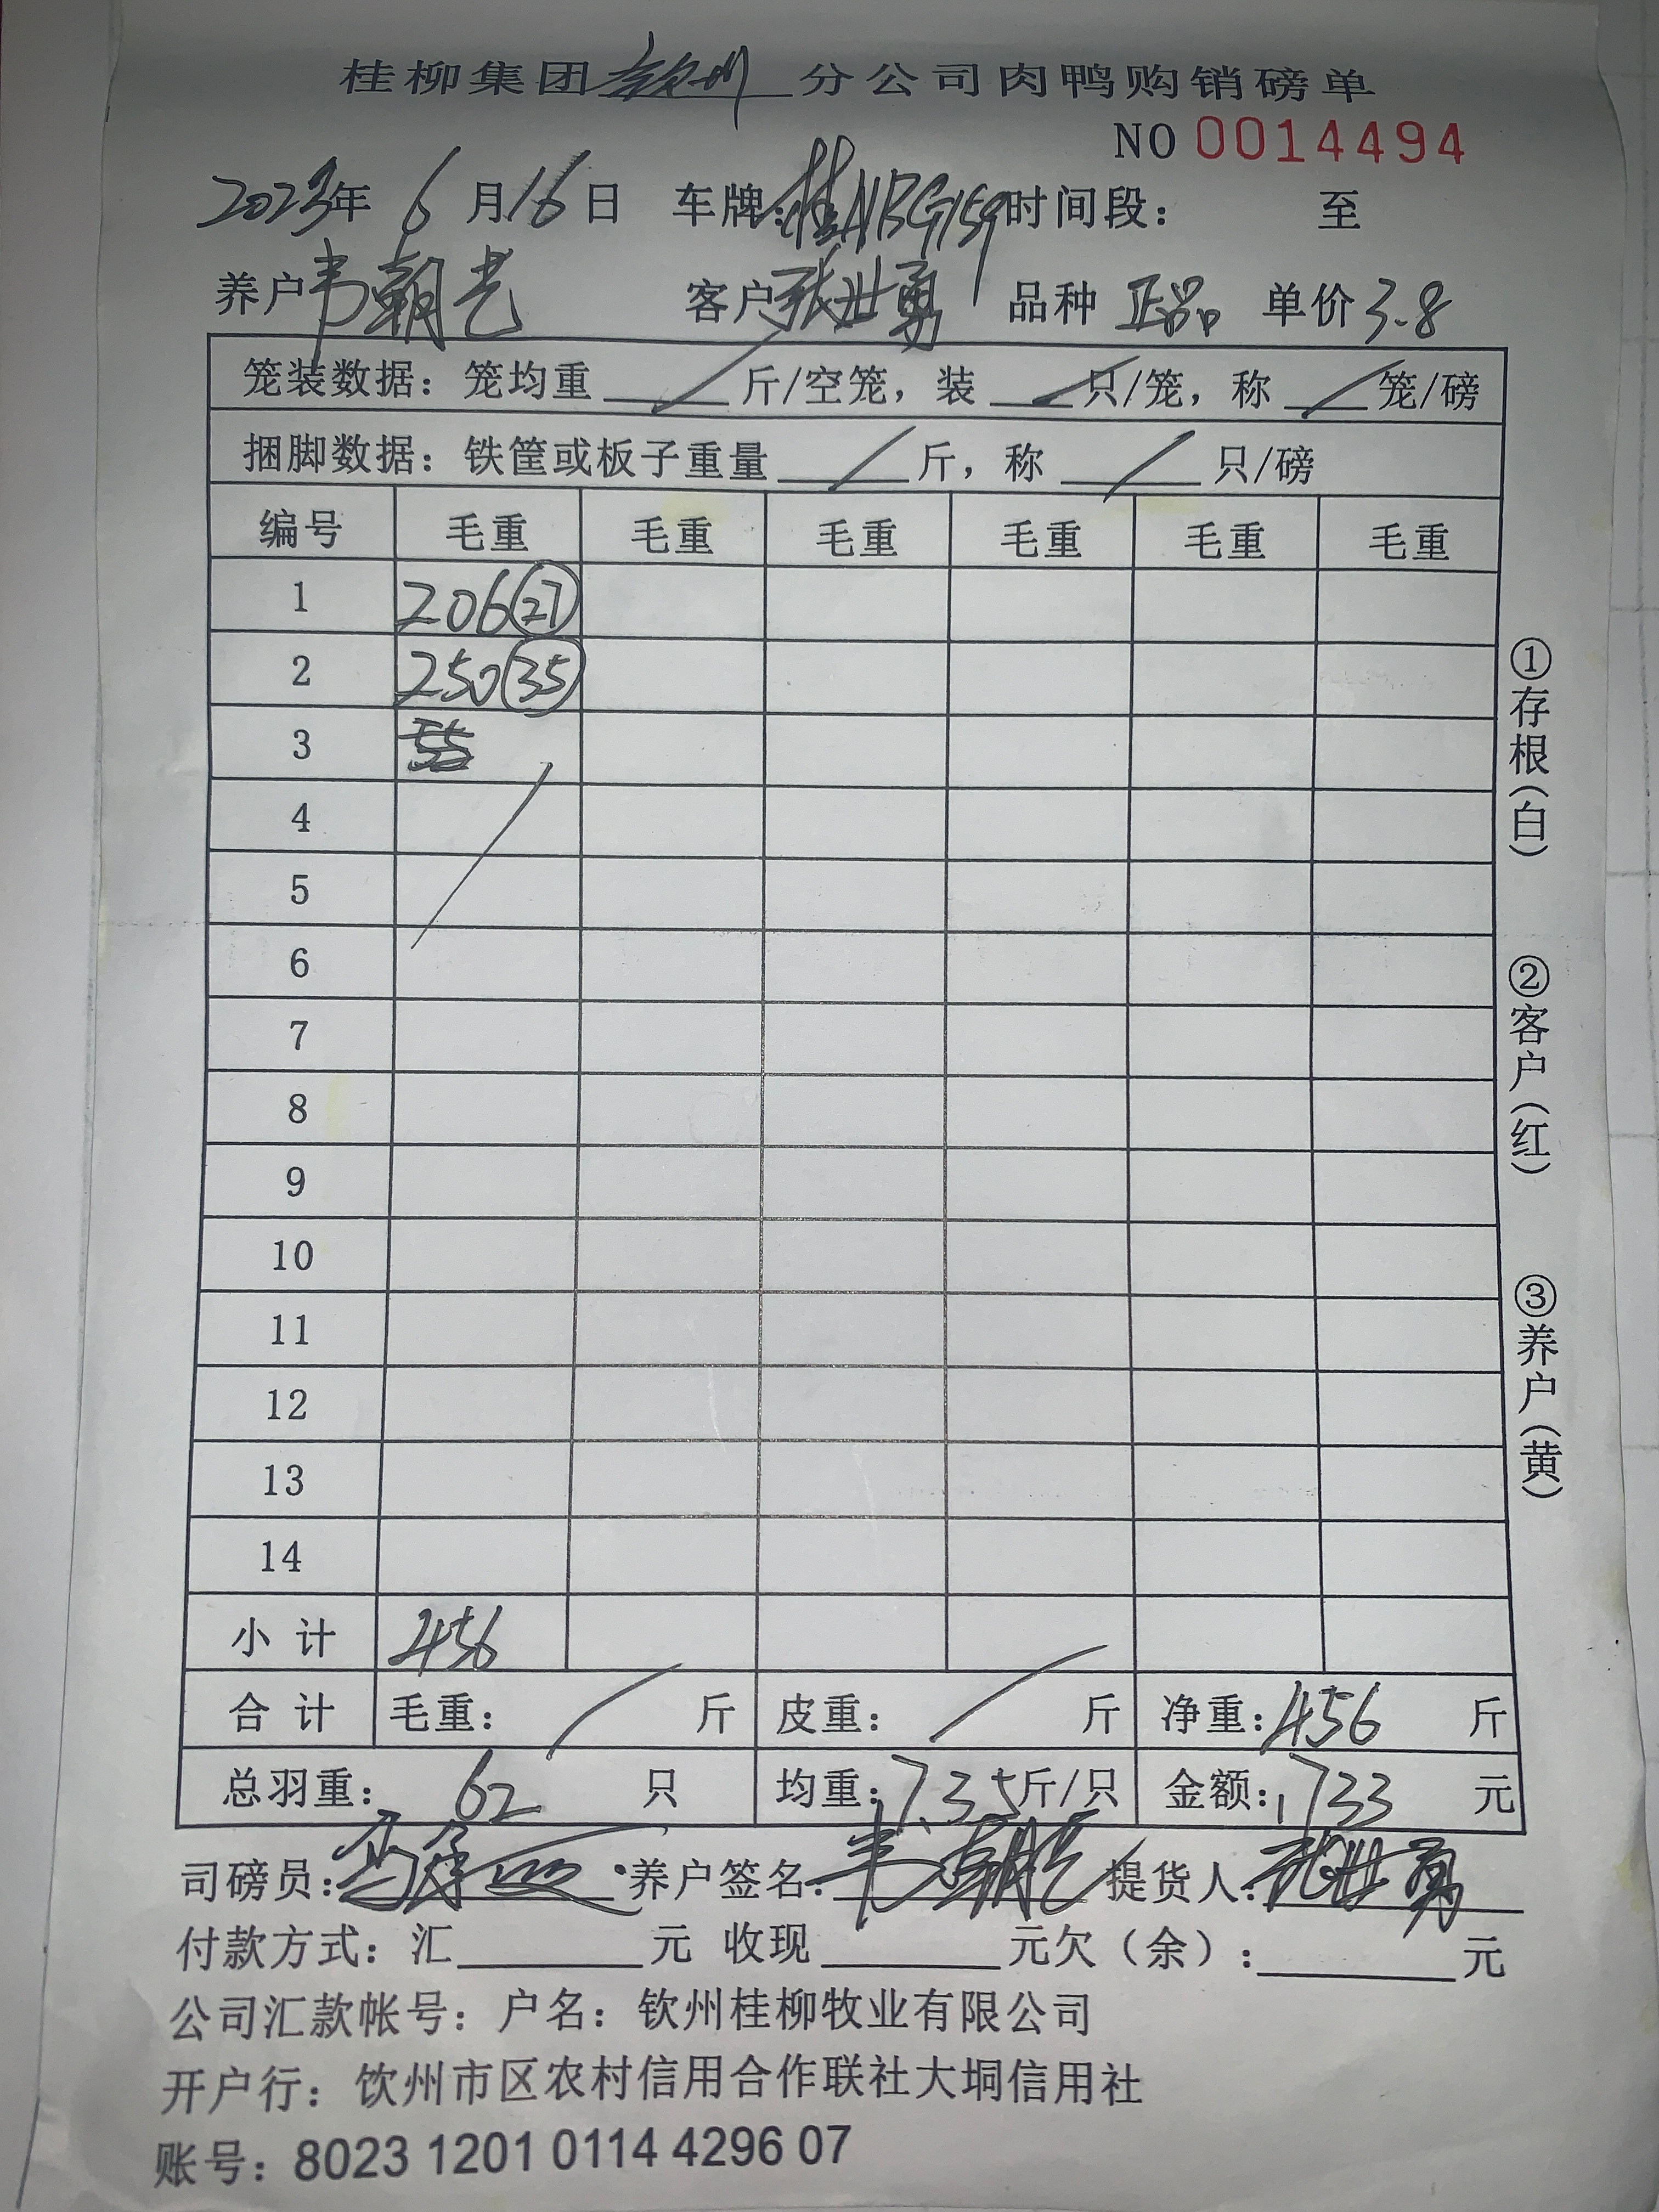 桂柳集团钦州分公司肉鸭购销磅单
NO 0014494
2023年 6月16日 车牌:桂NBG159时间段: 至
养户韦朝艺 客户张世勇 品种 正品 单价3.8
笼装数据:笼均重/斤/空笼,装/只/笼,称/笼/磅
捆脚数据:铁筐或板子重量/斤,称/只/磅
编号 毛重 毛重 毛重 毛重 毛重 毛重
1 206 27
2 250 35
3
4
5
6
7
8
9
10
11
12
13
14
小计 456
合计 毛重:/斤 皮重:/斤 净重:456斤
总羽重:62只 均重:7.35斤/只 金额:1733元
司磅员: 养户签名:韦朝艺 提货人:张世勇
付款方式:汇______元 收现______元欠(余):______元
公司汇款帐号:户名:钦州桂柳牧业有限公司
开户行:饮州市区农村信用合作联社大垌信用社
账号:8023 1201 0114 4296 07
①存根(白)
②客户(红)
③养户(黄)